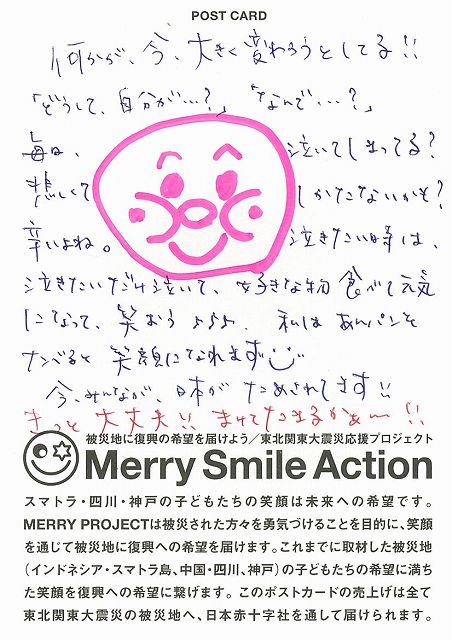 POST CARD
何かが、今、大きく変わろうとしてる!!
「どうして、自分が…?」「なんで…?」
毎日、泣いてしまってる?
悲しくてしかたないかも?
辛いよね。泣きたい時は、
泣きたいだけ泣いて、好きな物食べて元気
になって、笑おう♪♪♪ 私はあんパンを
食べると笑顔になれます
今、みんなが、日本がためされてます!!
きっと大丈夫!! まけてたまるかぁー!!
被災地に復興の希望を届けよう/東北関東大震災応援プロジェクト
Merry Smile Action
スマトラ・四川・神戸の子どもたちの笑顔は未来への希望です。
MERRY PROJECTは被災された方々を勇気づけることを目的に、笑顔
を通じて被災地に復興への希望を届けます。これまでに取材した被災地
(インドネシア・スマトラ島、中国・四川、神戸)の子どもたちの希望に満ち
た笑顔を復興への希望に繋げます。このポストカードの売上げは全て
東北関東大震災の被災地へ、日本赤十字社を通して届けられます。